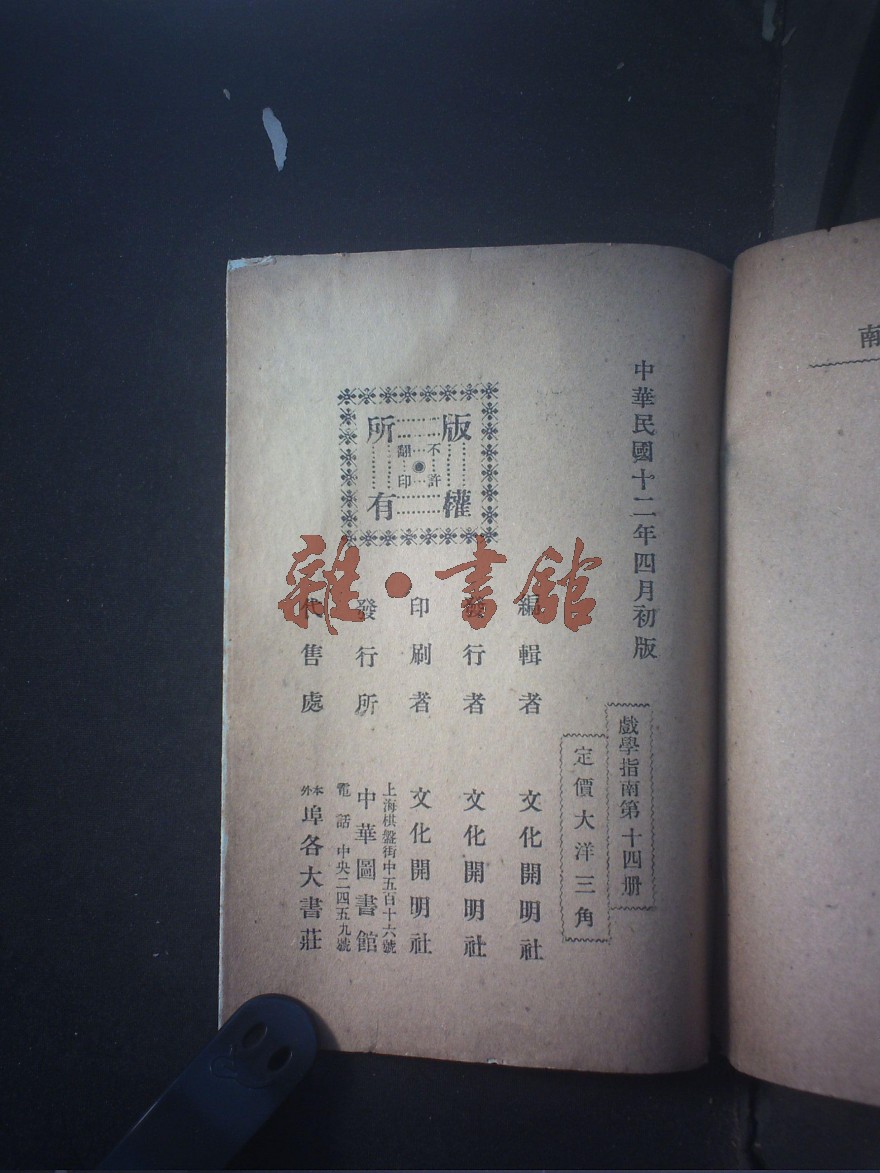 南
中華民國十二年四月初版
戲學指南第十四册
定價大洋三角
編輯者 文化開明社
發行者 文化開明社
印刷者 文化開明社
上海棋盤街中五百十六號
發行所 中華圖書館
電話 中央二四五九號
代售處 本外埠各大書莊
版權所有
不許翻印
雜·書館